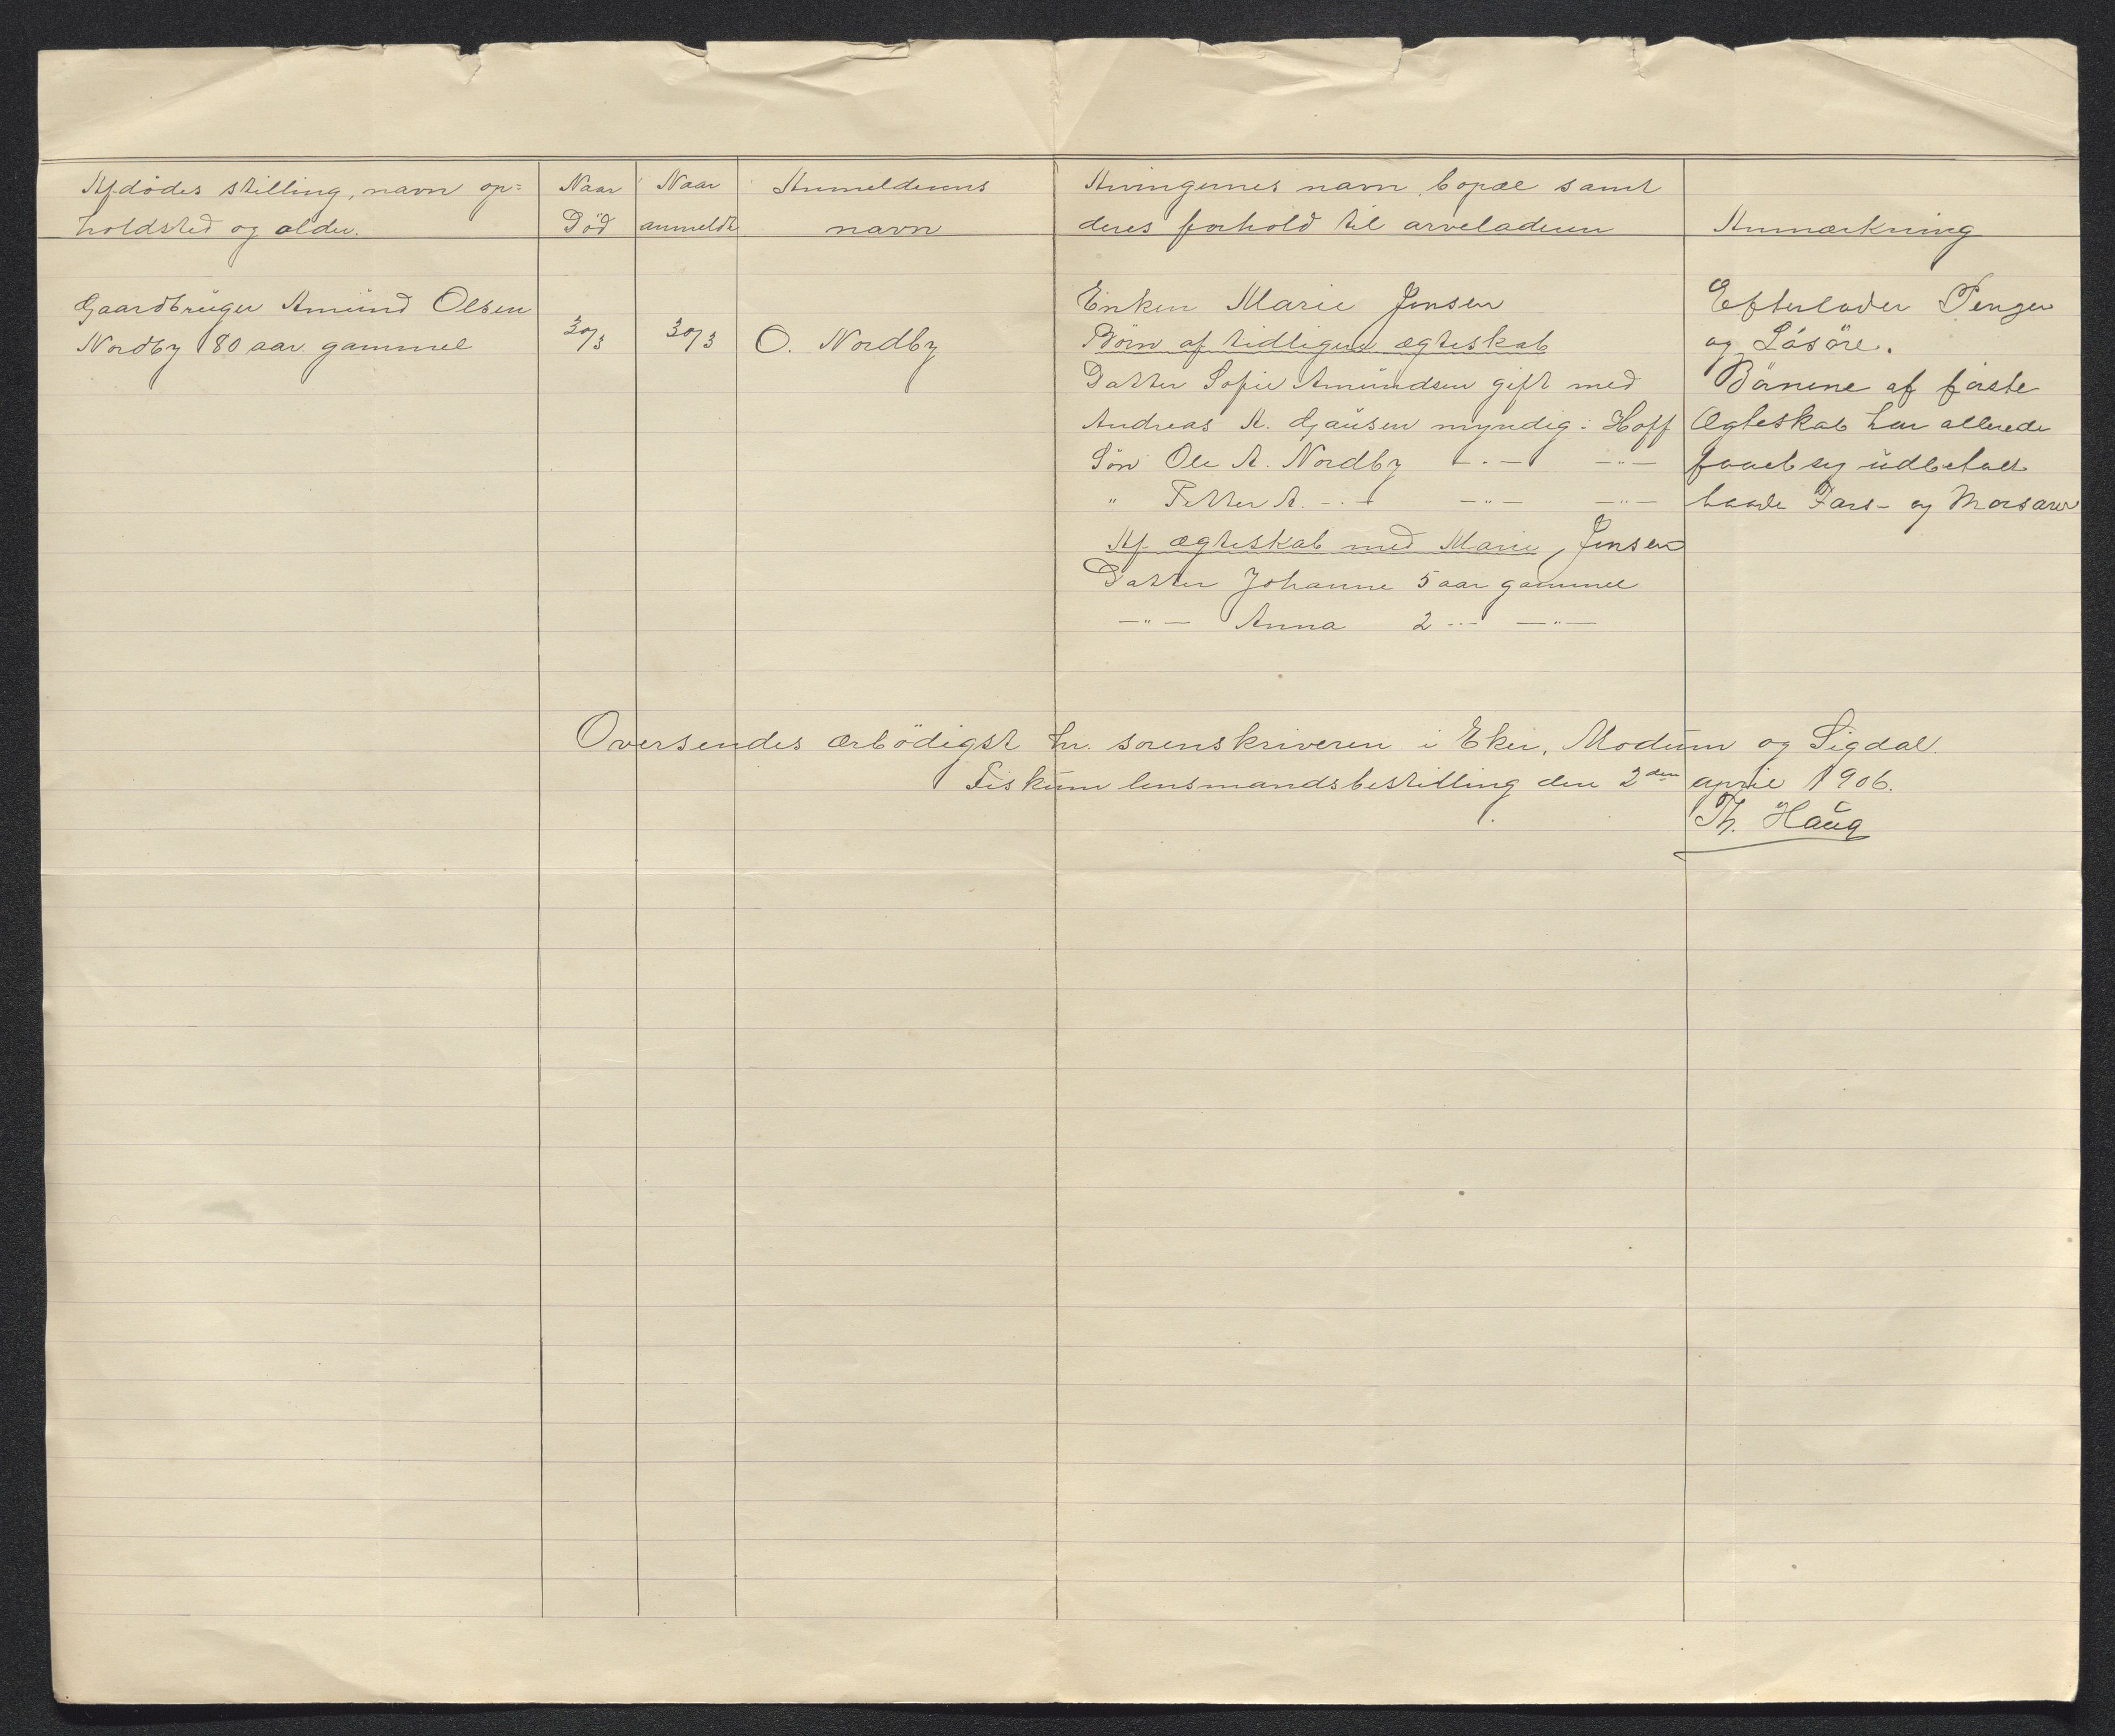 Afdödes stilling, navn op=
holdsted og alder.
Naar
Död
Naar
anmeldt
Anmelderens
navn
Arvingernes navn, bopæl samt
deres forhold til arveladeren
Anmærkning
Gaardbruger Amund Olsen
Nordby 80 aar gammel
30/3
30/3
O. Nordby
Enken Marie Jensen
Börn af tidligere ægteskab
Datter Sofie Amundsen gift med
Andreas A. myndig: Hoff
Sön Ole A. Nordby -"- -"-
" Petter A. -"- -"- -"-
Af ægteskab med Marie Jensen
Datter Johanne 5 aar gammel
-"- Anna 2 -"- -"-
Efterlader Penger
og Lösöre.
Börnene af förste
Ægteskab har allerede
faaet sig udbetalt
baade Fars- og Morsarv
Oversendes ærbödigst hr. sorenskriveren i Eker, Modum og Sigdal.
Fiskum lensmandsbestilling den 2den april 1906.
Th. Haug